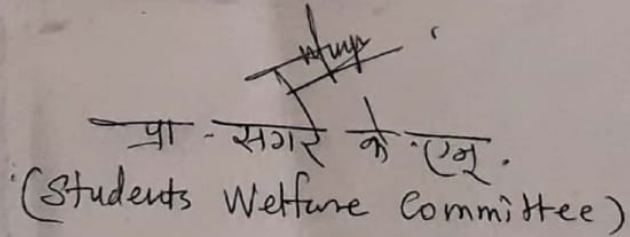 प्रा - सगरे के.एन्.
(Students Welfare Committee)